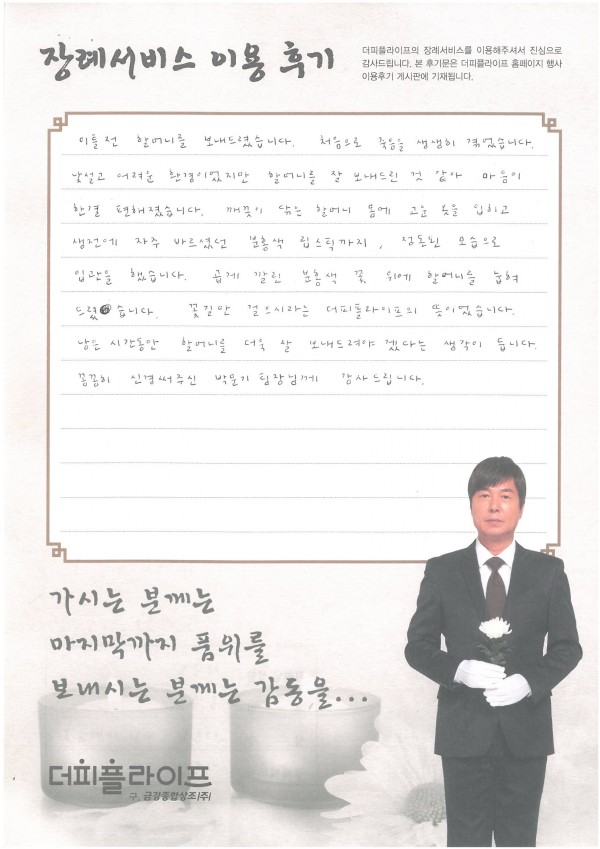 장례서비스 이용 후기
더피플라이프의 장례서비스를 이용해주셔서 진심으로
감사드립니다. 본 후기문은 더피플라이프 홈페이지 행사
이용후기 게시판에 기재됩니다.
이틀전 할머니를 보내드렸습니다. 처음으로 죽음을 생생히 겪었습니다.
낯설고 어려운 환경이었지만 할머니를 잘 보내드린 것 같아 마음이
한결 편해졌습니다. 깨끗이 닦은 할머니 몸에 고운 옷을 입히고
생전에 자주 바르셨던 분홍색 립스틱까지, 정돈된 모습으로
입관을 했습니다. 곱게 깔린 분홍색 꽃 위에 할머니를 눕혀
드렸습니다. 꽃길만 걸으시라는 더피플라이프의 뜻이었습니다.
남은 시간동안 할머니를 더욱 잘 보내드려야 겠다는 생각이 듭니다.
꼼꼼히 신경써주신 박문기 팀장님께 감사드립니다.
가시는 분께는
마지막까지 품위를
보내시는 분께는 감동을...
더피플라이프
구. 금강종합상조(주)